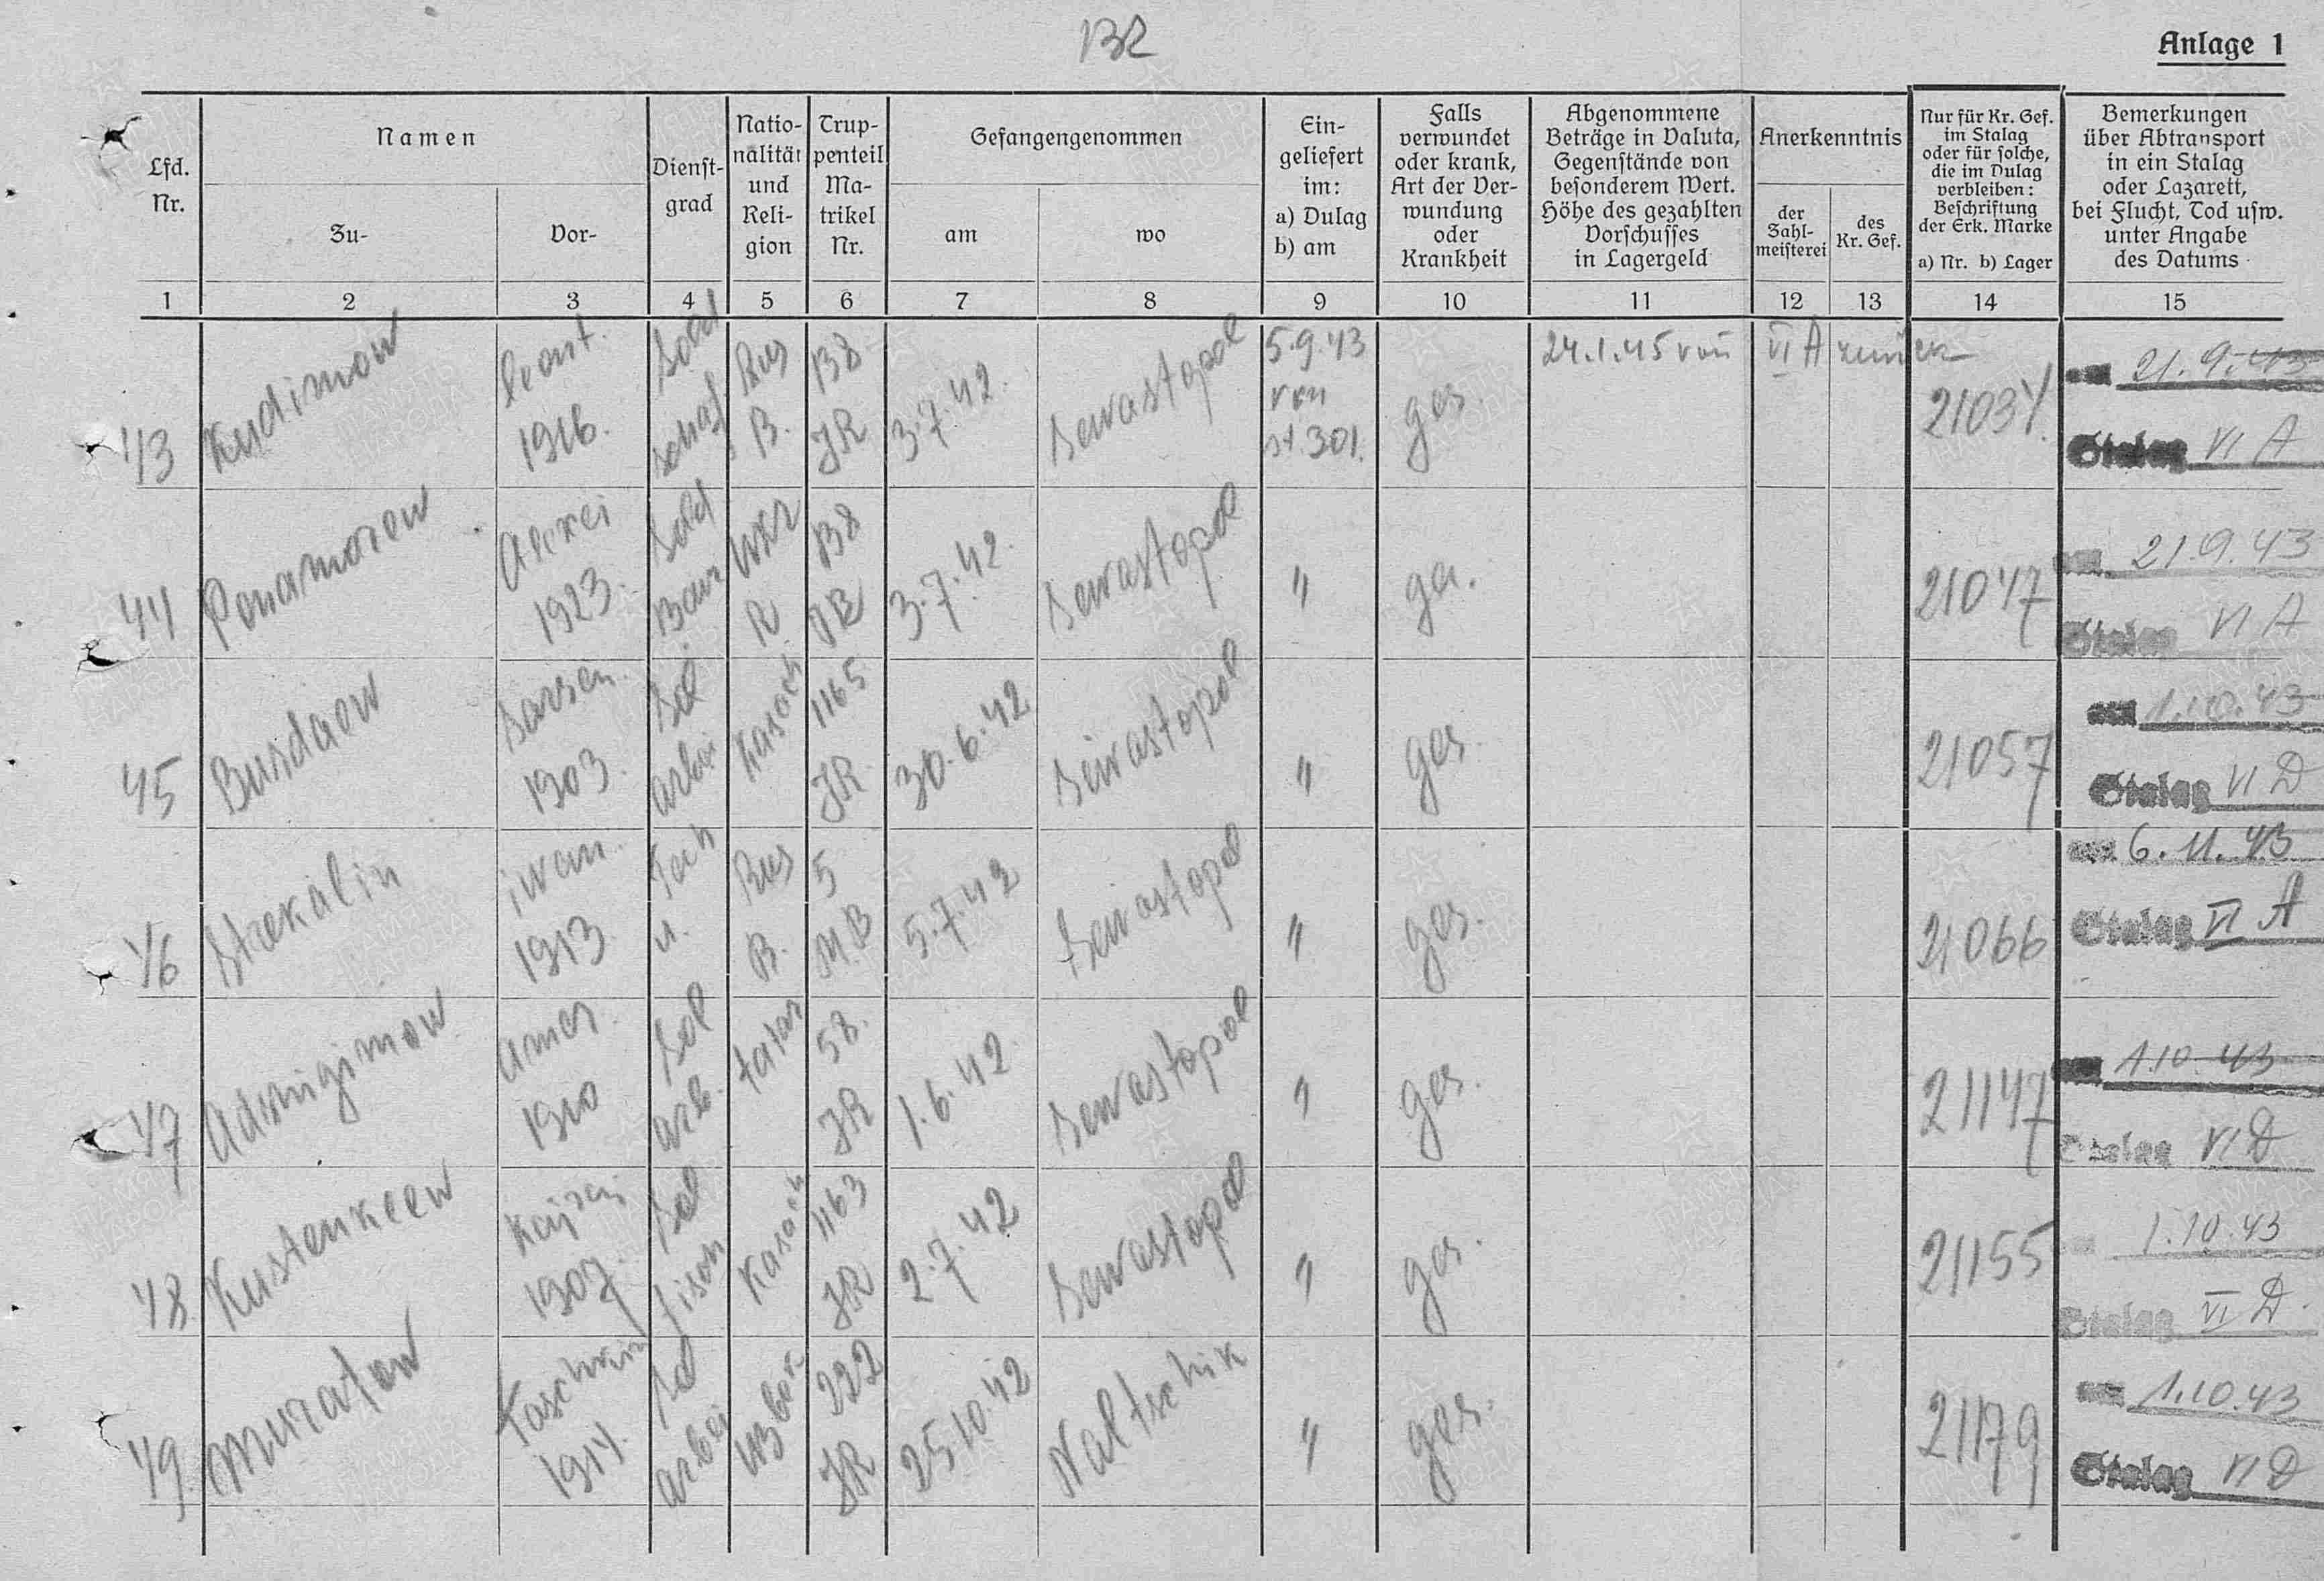 132
Anlage 1
Lfd. Nr.
Namen
Zu-
Vor-
Dienst-
grad
Natio-
nalität
und
Reli-
gion
Trup-
penteil
Ma-
trikel
Nr.
Gefangengenommen
am
wo
Ein-
geliefert
im:
a) Dulag
b) am
Falls
verwundet
oder krank,
Art der Ver-
wundung
oder
Krankheit
Abgenommene
Beträge in Valuta,
Gegenstände von
besonderem Wert.
Höhe des gezahlten
Vorschusses
in Lagergeld
Anerkenntnis
der
Zahl-
meisterei
des
Kr. Gef.
Nur für Kr. Gef.
im Stalag
oder für solche,
die im Dulag
verbleiben:
Beschriftung
der Erk. Marke
a) Nr. b) Lager
Bemerkungen
über Abtransport
in ein Stalag
oder Lazarett,
bei Flucht, Tod usw.
unter Angabe
des Datums
1 2 3 4 5 6 7 8 9 10 11 12 13 14 15
43 Kudimow Leont. 1916. Rus B. 138 JR 3.7.42. Sewastopol 5.9.43 von St. 301. ges. 24.1.45 von VI A zurück 21034. 21.9.43 Stalag VI A
44 Ponamorew Alexei 1923. Sold Baur Ukr R. 138 3.7.42. Sewastopol " ges. 21047 21.9.43 Stalag VI A
45 Burdaew Sarsen 1903. Sol. arbei Kasach 1165 JR 30.6.42 Sewastopol " ges. 21057 1.10.43 Stalag VI D
46 Strekalin iwan. 1913. Rus B. 5 M.B 5.7.42 Sewastopol " ges. 21066 6.11.43 Stalag VI A
47 Adsnigimow 1910 Sol arb. tatar 58. JR 1.6.42. Sewastopol " ges. 21147 1.10.43 Stalag VI D
48 Kustenkeew 1907. Sol fisch Kasach 1163 JR 2.7.42 Sewastopol " ges. 21155 1.10.43 Stalag VI D.
49 Muratow 1914. Sol arbei Usbek 222 JR 25.10.42 Naltschik " ges. 21179 1.10.43 Stalag VI D